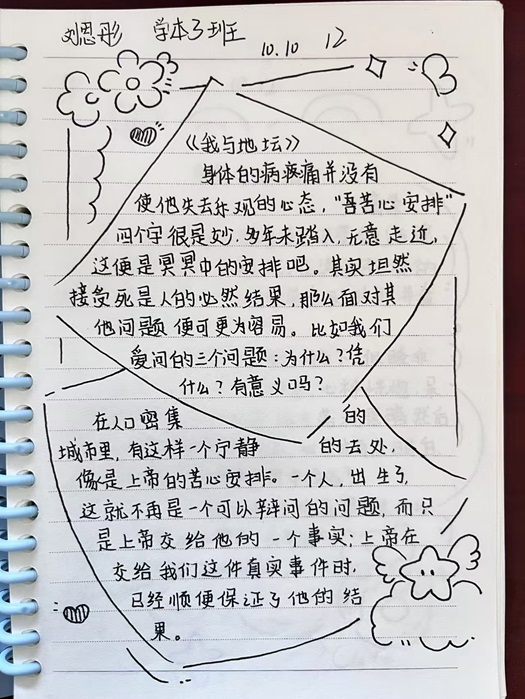 刘恩彤 学本3班 10.10 12
《我与地坛》
身体的病疼痛并没有
使他失去乐观的心态，“吾苦心安排”
四个字很是妙.多年未踏入，无意走近，
这便是冥冥中的安排吧。其实坦然
接受死是人的必然结果，那么面对其
他问题便可更为容易。比如我们
爱问的三个问题：为什么？凭
什么？有意义吗？
在人口密集的
城市里，有这样一个宁静的去处，
像是上帝的苦心安排。一个人，出生了，
这就不再是一个可以辩问的问题，而只
是上帝交给他的一个事实；上帝在
交给我们这件真实事件时，
已经顺便保证了他的结
果。